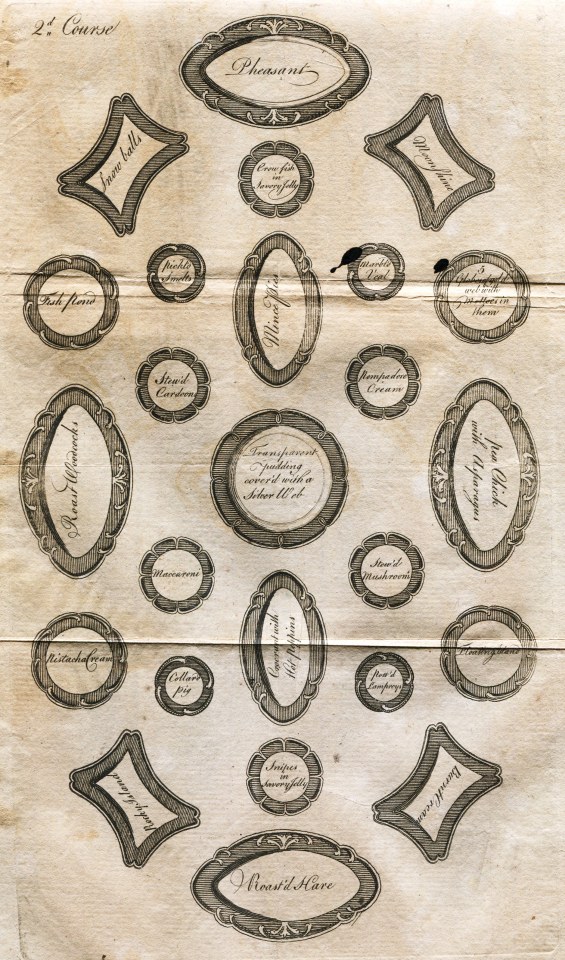 2.d Course
Pheasant
Snow balls
Craw fish
in
Savory Jelly
Moonshine
Fish pond
Pickle
Smelts
Mince Pies
Marble
Veal
5
web with
in
them
Stew'd
Cardoon
Pompadore
Cream
Roast Woodcocks
Transparent
pudding
cover'd with a
Silver Web
pea Chick
with Asparagus
Maccaroni
Stew'd
Mushroom
Pistacha Cream
Collard
pig
with
Hot Pippins
Pott'd
Lampreys
Floating
Rocky Island
Snipes
in
Savory Jelly
Burnt Cream
Roast'd Hare